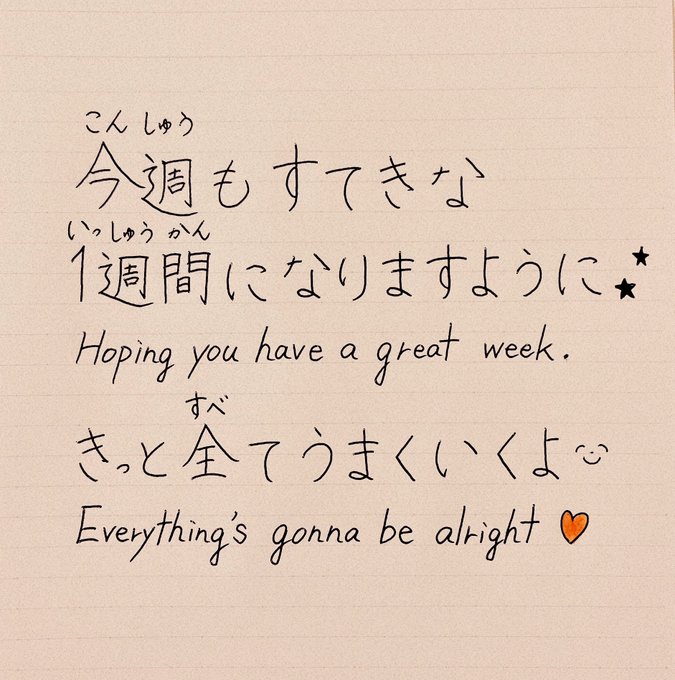 こんしゅう
今週もすてきな
いっしゅうかん
1週間になりますように★★
Hoping you have a great week.
すべ
きっと全てうまくいくよ
Everything's gonna be alright